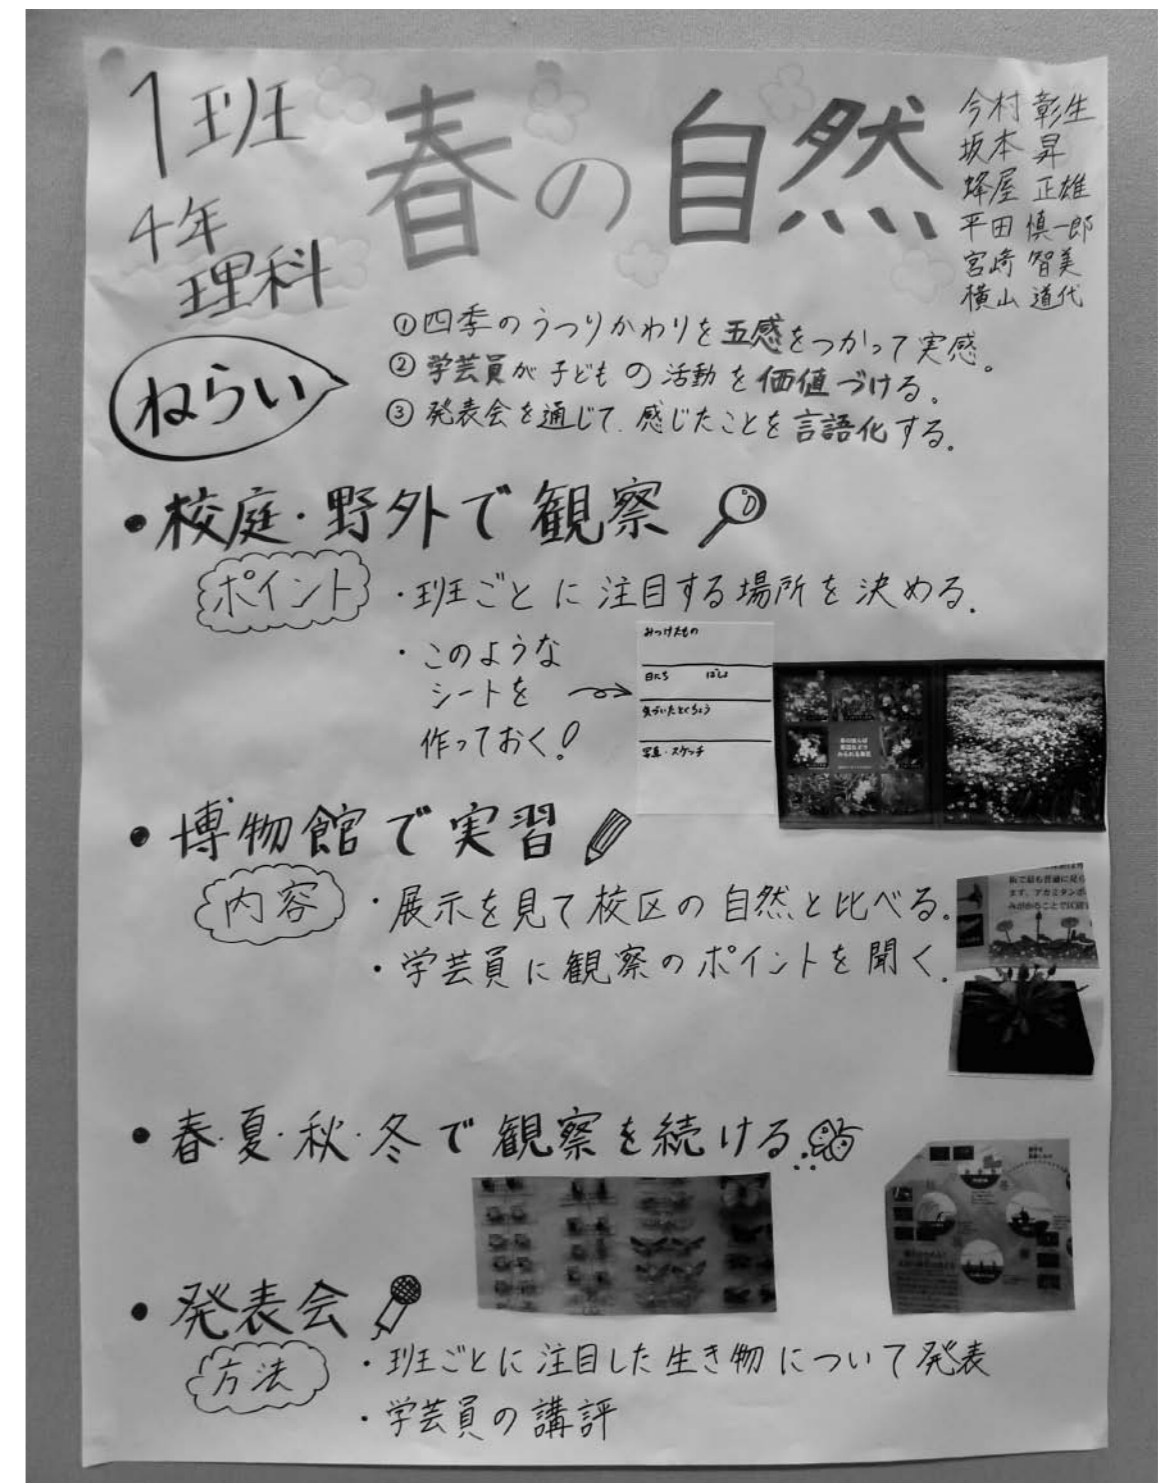 1班
4年
理科
春の自然
今村 彰生
坂本 昇
蜂屋 正雄
平田 慎一郎
宮崎 智美
横山 道代
ねらい
①四季のうつりかわりを五感をつかって実感。
②学芸員が子どもの活動を価値づける。
③発表会を通じて、感じたことを言語化する。
・校庭・野外で観察
ポイント
・班ごとに注目する場所を決める。
・このような
シートを
作っておく!
みつけたもの
日にち ばしょ
気づいたとくちょう
写真・スケッチ
・博物館で実習
内容
・展示を見て校区の自然と比べる。
・学芸員に観察のポイントを聞く。
街で最も普通に見ら
ます。アカミタンポ
・春・夏・秋・冬で観察を続ける
・発表会
方法
・班ごとに注目した生き物について発表
・学芸員の講評